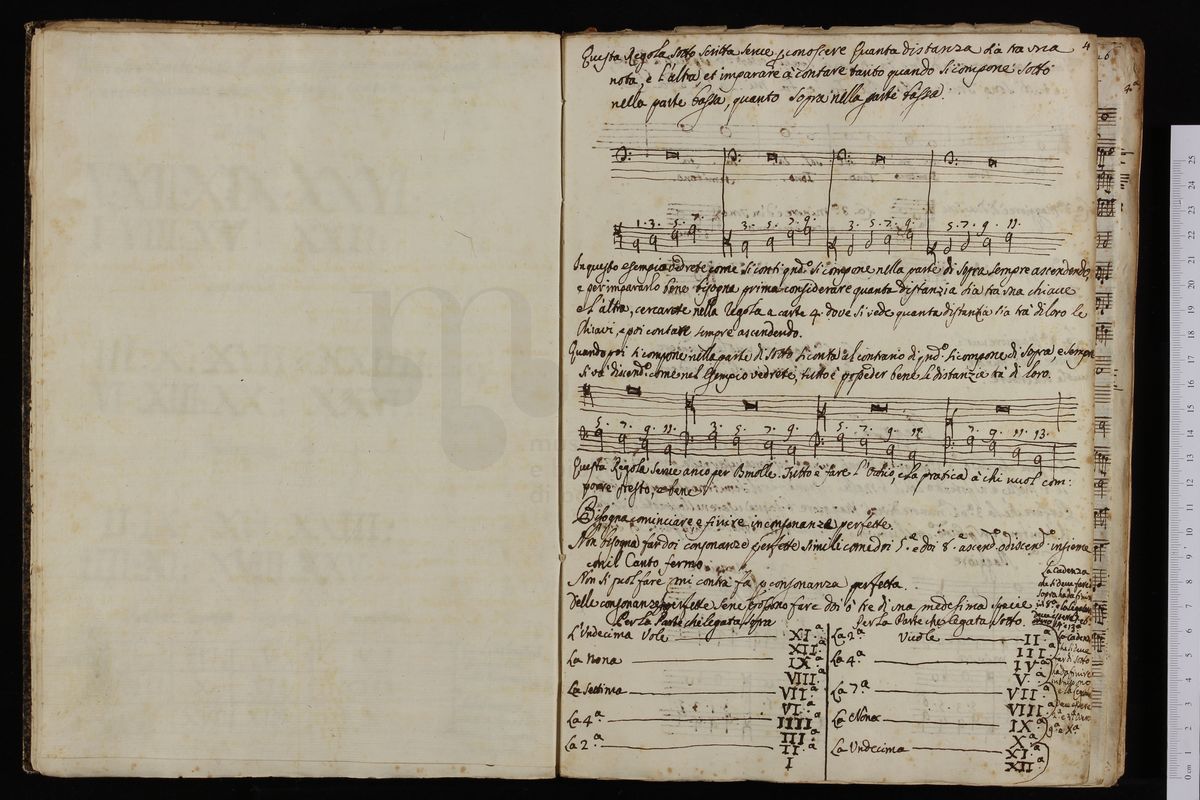 4
Questa Regola sotto scritta serve p conoscere quanta distanza sia tra una
nota, e l'altra, et imparare à contare tanto quando si compone sotto
nella parte bassa, quanto sopra nella parte bassa.
1. 3. 5. 7. 3. 5. 7. 9. 3. 5. 7. 9. 5. 7. 9. 11.
In questo esempio vedrete come si conti qnd.o si compone nella parte di sopra sempre ascendendo,
e per impararlo bene bisogna prima considerare quanta distanzia sia tra una chiave
e l'altra, cercarete nella Regola a carte 4. dove si vede quanta distanza sia trà di loro le
Chiavi, e poi contare sempre ascendendo.
Quando poi si compone nella parte di sotto si conta al contrario di qnd.o si compone di sopra e sempre
si và discend.o come nel Esempio vedrete, tutto è p veder bene le distanzie trà di loro.
5. 7. 9. 11. 3. 5. 7. 9. 5. 7. 9. 11. 7. 9. 11. 13.
Questa Regola serve anco per Bmolle. Tutto è fare l'Ochio, e la pratica à chi vuol com:
porre presto, e bene.
Bisogna cominciare e finire in consonanze perfette.
Non bisogna far doi consonanze perfette simili come doi 5.e e doi 8.e ascend.o o discend.o insieme
con il Canto fermo.
Non si puol fare mi contra fà p consonanza perfetta.
Delle consonanze imperfette se ne possono fare doi ò tre di una medesima specie.
Per la Parte che legata sopra
L'Undecima Vole XI.a
XII.a
La Nona IX.a
VIII.a
La settima VII.a
VI.a
La 4.a IIII.a
III.a
La 2.a II.a
I
Per la Parte che legata sotto.
La 2.a Vuole II.a
III.a
La 4.a IV.a
V.a
La 7.a VII.a
VIII.a
La Nona IX.a
X.a
La Undecima XI.a
XII.a
La Cadenza
che si deve fare
sopra ha da finire
in 8.a e la legatura
La Cadenza
che si deve
far di sotto
ha da finire
in unisono
e la legatura
deve essere
2.a e 3.a overo
9.a e X.a